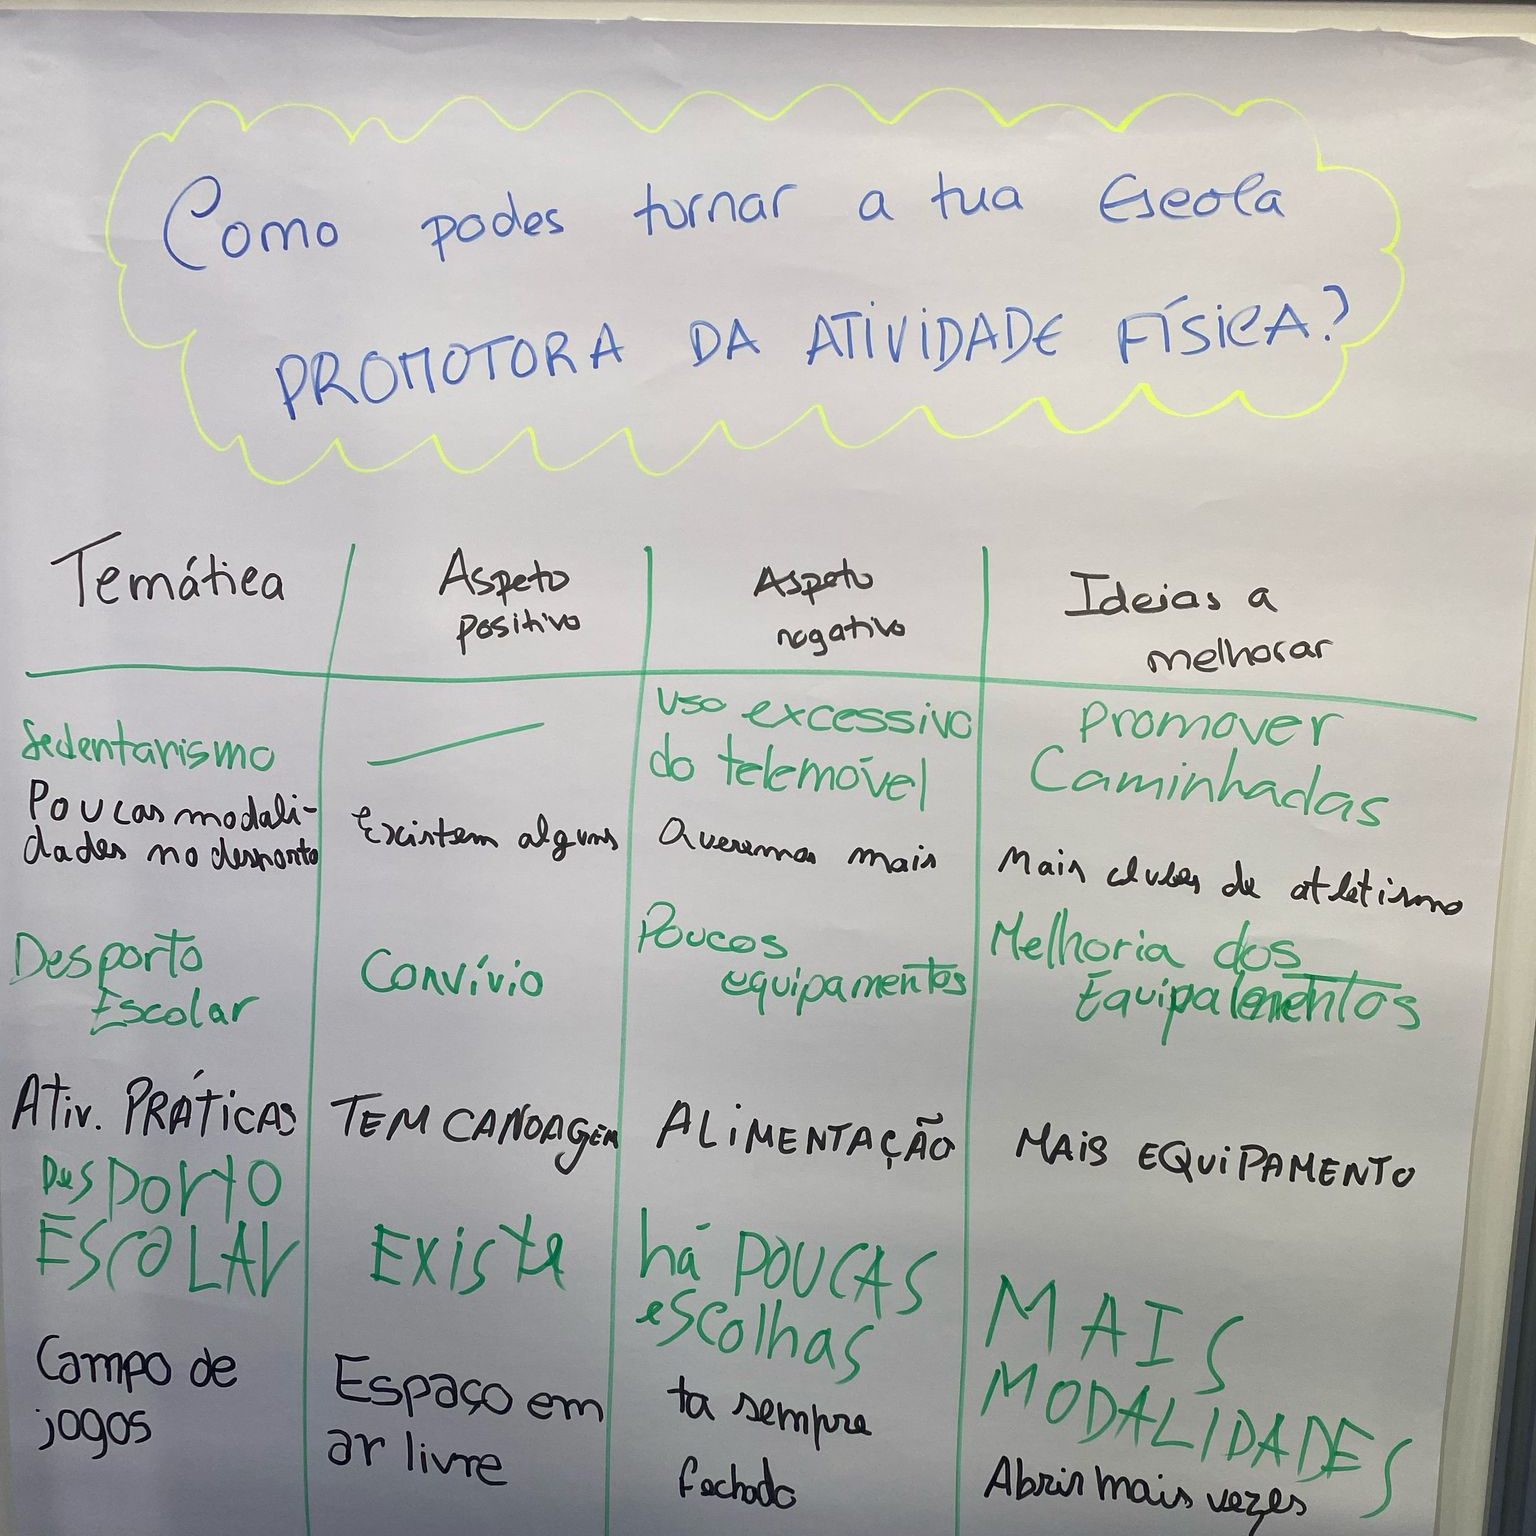 Como podes turnar a tua Escola
PROMOTORA DA ATIVIDADE FÍSICA?
Temática
Aspeto
positivo
Aspeto
negativo
Ideias a
melhorar
Sedentarismo
uso excessivo
do telemóvel
Promover
Caminhadas
Poucas modali-
dades no desporto
Existem alguns
Queremos mais
Mais clubes de atletismo
Desporto
Escolar
Convívio
Poucos
equipamentos
Melhoria dos
Equipamentos
Ativ. PRÁTICAS
TEM CANOAGEM
ALIMENTAÇÃO
MAIS EQUIPAMENTO
DesPorto
ESCOLAr
EXiste
há POUCAS
escolhas
MAIS
MODALIDADES
Campo de
jogos
Espaço em
ar livre
ta sempre
fechado
Abrir mais vezes